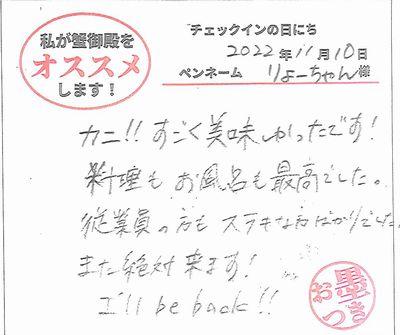 私が蟹御殿を
オススメ
します！
チェックインの日にち
2022年11月10日
ペンネーム りょーちゃん様
カニ!! すごく美味しかったです！
料理もお風呂も最高でした。
従業員の方もステキな方ばかりでした。
また絶対来ます！
I'll be back!!
お墨つき